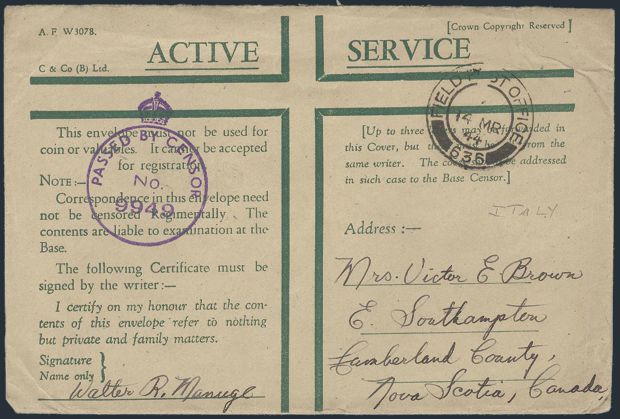 A. F. W3078.
[Crown Copyright Reserved]
ACTIVE SERVICE
C & Co (B) Ltd.
This envelope must not be used for
coin or valuables. It cannot be accepted
for registration.
NOTE:—
Correspondence in this envelope need
not be censored Regimentally. The
contents are liable to examination at the
Base.
The following Certificate must be
signed by the writer:—
I certify on my honour that the con-
tents of this envelope refer to nothing
but private and family matters.
Signature
Name only
Walter R. Manuge
PASSED BY CENSOR
No.
9949
FIELD POST OFFICE
14 MR
44
[Up to three may be in
this Cover, but must be from the
same writer. The addressed
in such case to the Base Censor.]
ITALY
Address:—
Mrs. Victor E. Brown
E. Southampton
Cumberland County,
Nova Scotia, Canada,